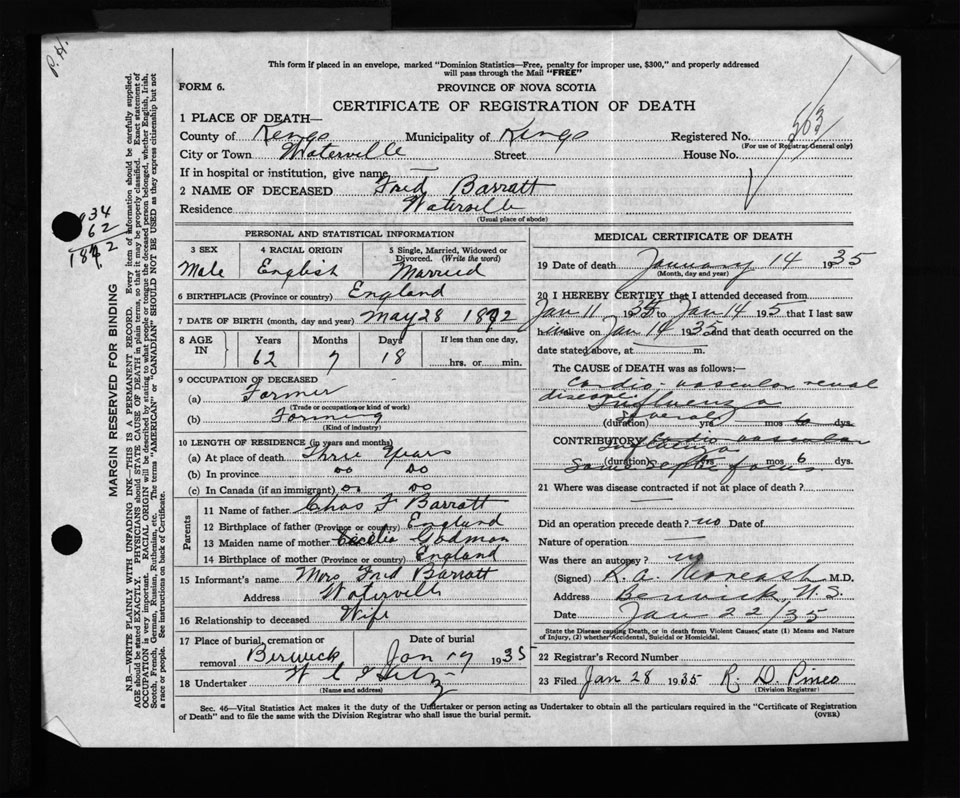 P. H.
This form if placed in an envelope, marked "Dominion Statistics—Free, penalty for improper use, $300," and properly addressed
will pass through the Mail "FREE"
FORM 6.
PROVINCE OF NOVA SCOTIA
CERTIFICATE OF REGISTRATION OF DEATH
1 PLACE OF DEATH—
County of Kings Municipality of Kings Registered No. 563
(For use of Registrar General only)
City or Town Waterville Street House No.
If in hospital or institution, give name —
2 NAME OF DECEASED Fred Barratt
Residence Waterville
(Usual place of abode)
34
62
1872
MARGIN RESERVED FOR BINDING
N.B.—WRITE PLAINLY WITH UNFADING INK—THIS IS A PERMANENT RECORD. Every item of information should be carefully supplied.
AGE should be stated EXACTLY. PHYSICIANS should STATE CAUSE OF DEATH in plain terms, so that it may be properly classified. Exact statement of
OCCUPATION is very important. RACIAL ORIGIN will be described by stating to what people or tongue the deceased person belonged, whether English, Irish,
Scotch, French, German, Russian, Ruthenian, etc. The terms "AMERICAN" or "CANADIAN" SHOULD NOT BE USED as they express citizenship but not
a race or people. See instructions on back of Certificate.
PERSONAL AND STATISTICAL INFORMATION
3 SEX 4 RACIAL ORIGIN 5 Single, Married, Widowed or
Divorced. (Write the word)
Male English Married
6 BIRTHPLACE (Province or country) England
7 DATE OF BIRTH (month, day and year) May 28 1872
8 AGE IN Years Months Days If less than one day,
62 7 18 hrs. or min.
9 OCCUPATION OF DECEASED
(a) Farmer
(Trade or occupation or kind of work)
(b) Farming
(Kind of industry)
10 LENGTH OF RESIDENCE (in years and months)
(a) At place of death Three Years
(b) In province do do
(c) In Canada (if an immigrant) do do
Parents
11 Name of father Chas F Barratt
12 Birthplace of father (Province or country) England
13 Maiden name of mother Cecelia Godman
14 Birthplace of mother (Province or country) England
15 Informant's name Mrs Fred Barratt
Address Waterville
16 Relationship to deceased Wife
17 Place of burial, cremation or Date of burial
removal Berwick Jan 17 1935
18 Undertaker
(Name and address)
MEDICAL CERTIFICATE OF DEATH
19 Date of death January 14 1935
(Month, day and year)
20 I HEREBY CERTIFY that I attended deceased from
Jan 11 1935 to Jan 14 195 that I last saw
him alive on Jan 14 1935 and that death occurred on
date stated above, at m.
The CAUSE OF DEATH was as follows:—
Cardio-vascular renal
disease Influenza
(duration) Several yrs mos 6 dys.
CONTRIBUTORY Cardio vascular
Influenza
(duration) yrs mos 6 dys.
Some septic focus
21 Where was disease contracted if not at place of death?
Did an operation precede death? no Date of
Nature of operation —
Was there an autopsy? no
(Signed) R. A. M.D.
Address Berwick N.S.
Date Jan 22/35
State the Disease causing Death, or in death from Violent Causes, state (1) Means and Nature
of Injury, (2) whether Accidental, Suicidal or Homicidal.
22 Registrar's Record Number
23 Filed Jan 28 1935 R. D. Pineo
(Division Registrar)
Sec. 46—Vital Statistics Act makes it the duty of the Undertaker or person acting as Undertaker to obtain all the particulars required in the "Certificate of Registration
of Death" and to file the same with the Division Registrar who shall issue the burial permit.
(OVER)